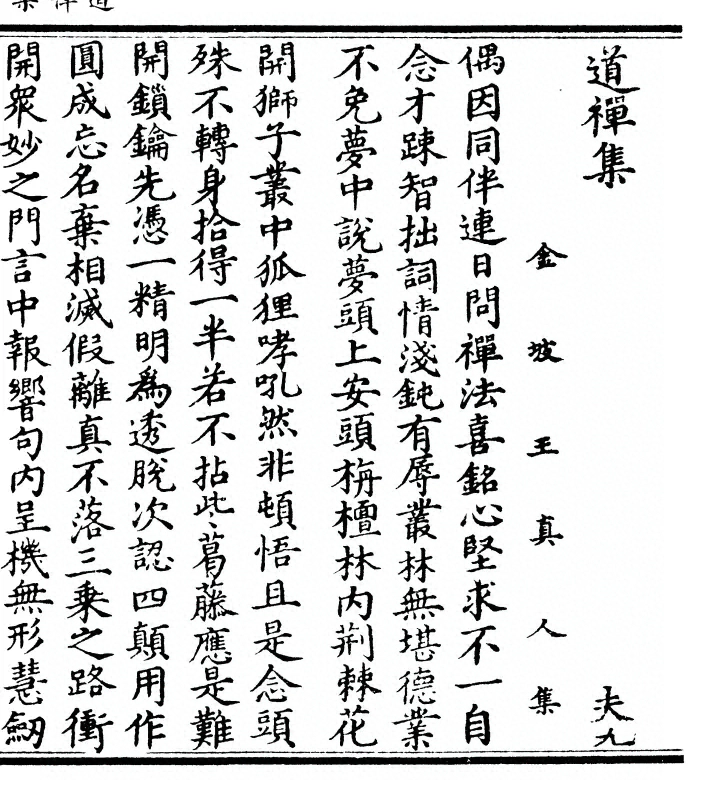 道禪集
金坡王真人集 夫九
偶因同伴連日問禪法喜銘心堅求不一自
念才踈智拙詞情淺鈍有辱叢林無堪德業
不免夢中說夢頭上安頭栴檀林内荆棘花
開獅子叢中狐狸哮吼然非頓悟且是念頭
殊不轉身拾得一半若不拈些葛藤應是難
開鎖鑰先憑一精明爲透脫次認四顛用作
圓成忘名棄相滅假離真不落三乗之路衝
開衆妙之門言中報響句内呈機無形慧劒